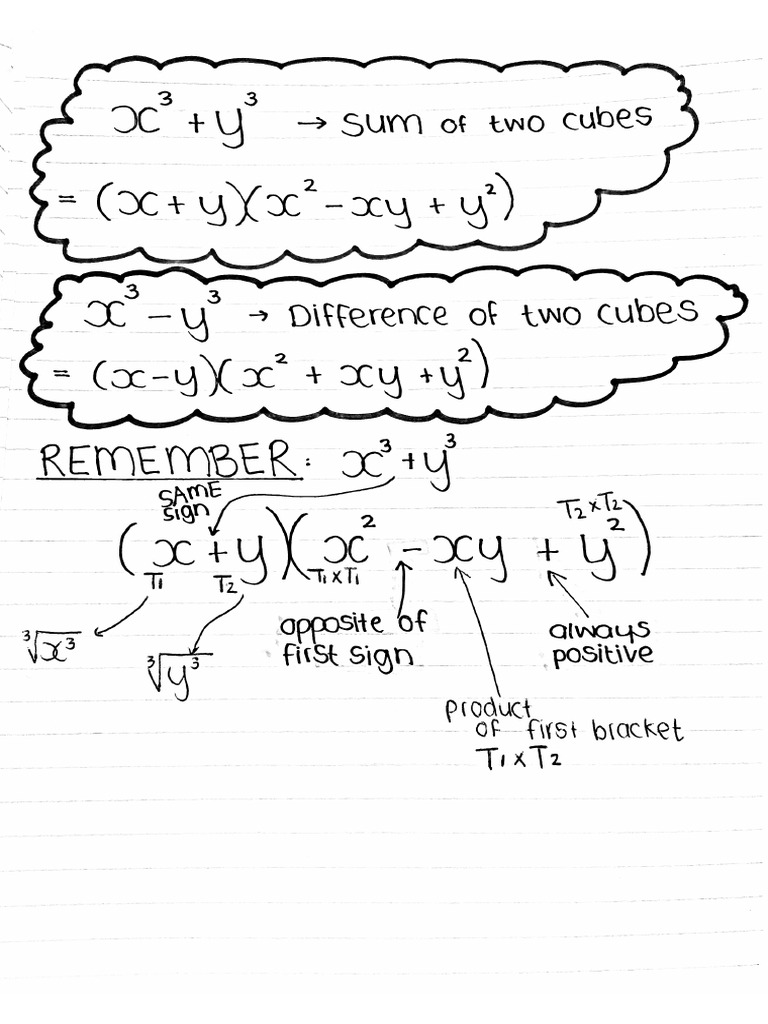 x³ + y³ → Sum of two cubes
= (x + y)(x² - xy + y²)
x³ - y³ → Difference of two cubes
= (x - y)(x² + xy + y²)
REMEMBER: x³ + y³
SAME
sign
T₂ x T₂
(x + y)(x² - xy + y²)
T₁ T₂ T₁ x T₁
opposite of
first sign
always
positive
∛x³
∛y³
product
of first bracket
T₁ x T₂